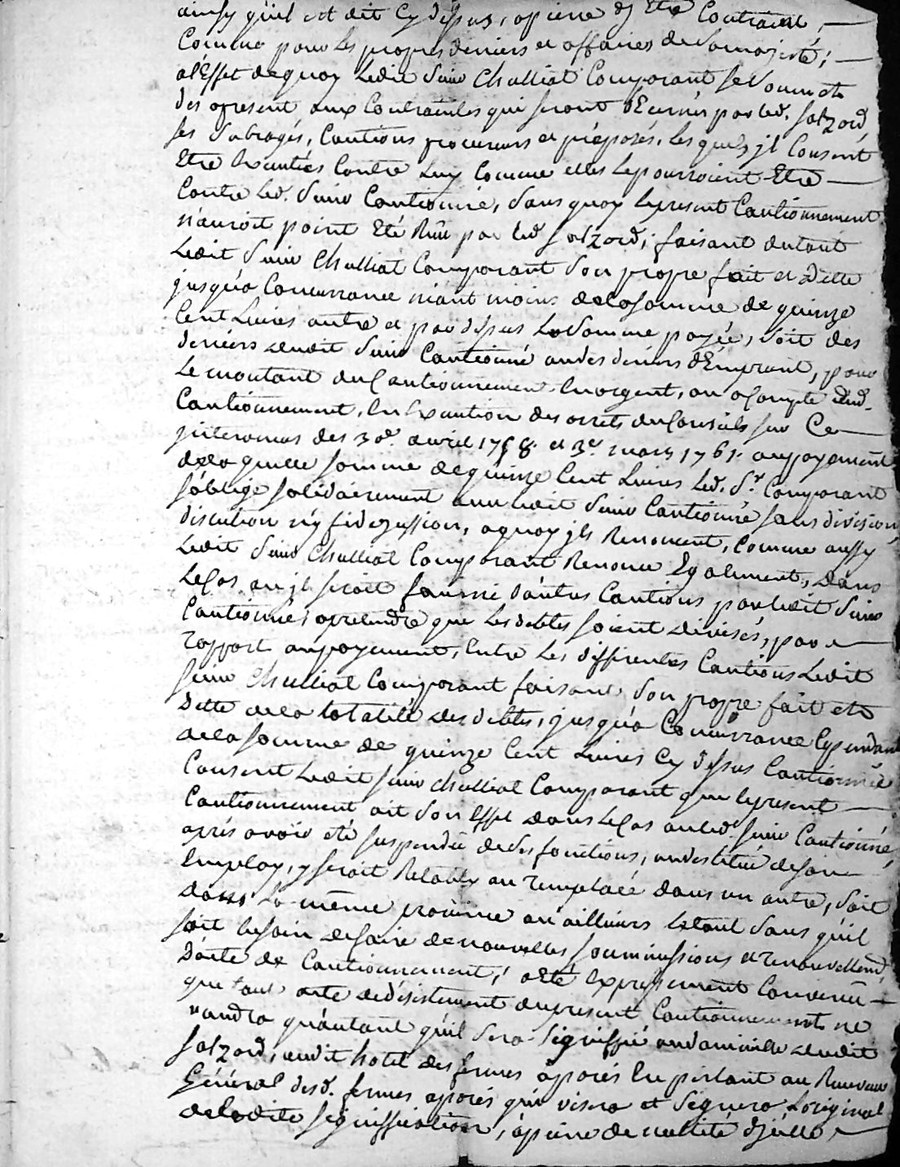 ainsy qu'il est dit Cy dessus, apeine d'y Etre Contraint
Comme pour les propres deniers et affaires de Sa majesté;
a l'Effet de quoy Ledit Sieur Chulliat Comparant se Soumet
des apresent aux Contraintes qui seront décernés par led. Salzard
ses Subrogés, Cautions procureurs et préposés, les quels jl Consent
Etre Executées Contre Luy Comme elles le pourroient Etre
Contre led. Sieur Cautionné, Sans quoy le present Cautionnement
n'auroit point Eté Reçu par led Salzard; faisant du tout
Ledit Sieur Chulliat Comparant Son propre fait et Dette
jusqu'a Concurrance néant moins de la somme de quinze
Cent Livres outre et par dessus La Somme payée, Soit des
deniers dudit Sieur Cautionné ou des deniers d'Emprunt, pour
Le montant du Cautionnement En argent, ou a Compte dud.
Cautionnement, En Execution des arrets du Conseils sur Ce
jntervenus des 30e. avril 1758. et 3e. mars 1761. au payement
de la quelle somme de quinze Cent Livres led. Sr. Comparant
s'oblige solidairement avec ledit Sieur Cautionné sans division
discution ny fidejussion, a quoy jls Renoncent, Comme aussy
Ledit Sieur Chulliat Comparant Renonce Egalement, dans
le Cas ou jl seroit fourni d'autres Cautions par ledit Sieur
Cautionné, a pretendre que les debtes soient divisés, par
rapport au payement, Entre Les différentes Cautions Ledit
Sieur Chulliat Comparant faisant Son propre fait et
Dette de la totalité des debtes, jusqu'a Concurrance Cependant
de la somme de quinze Cent Livres Cy dessus Cautionnée
Consent Ledit Sieur Chulliat Comparant que le present
Cautionnement ait Son Effet dans le Cas ou led. Sieur Cautionné
aprés avoir eté suspendu de ses fonctions, ou destitué de son
Employ, y seroit Retably ou remplacé dans un autre, Soit
dans La même province ou ailleurs Letout Sans qu'il
soit besoin de faire de nouvelles soummissions et renouvellemt
D'acte de Cautionnement; a eté Expressement Convenu
que tout acte de désistement du present Cautionnement ne
vaudra qu'autant qu'il sera Signiffié au domicile dudit
Salzard, audit hotel des fermes aparis En parlant au Receveur
Général desd. fermes aparis qui visera et Signera L'original
de ladite Signiffication, apeine de nullité d'jcelle